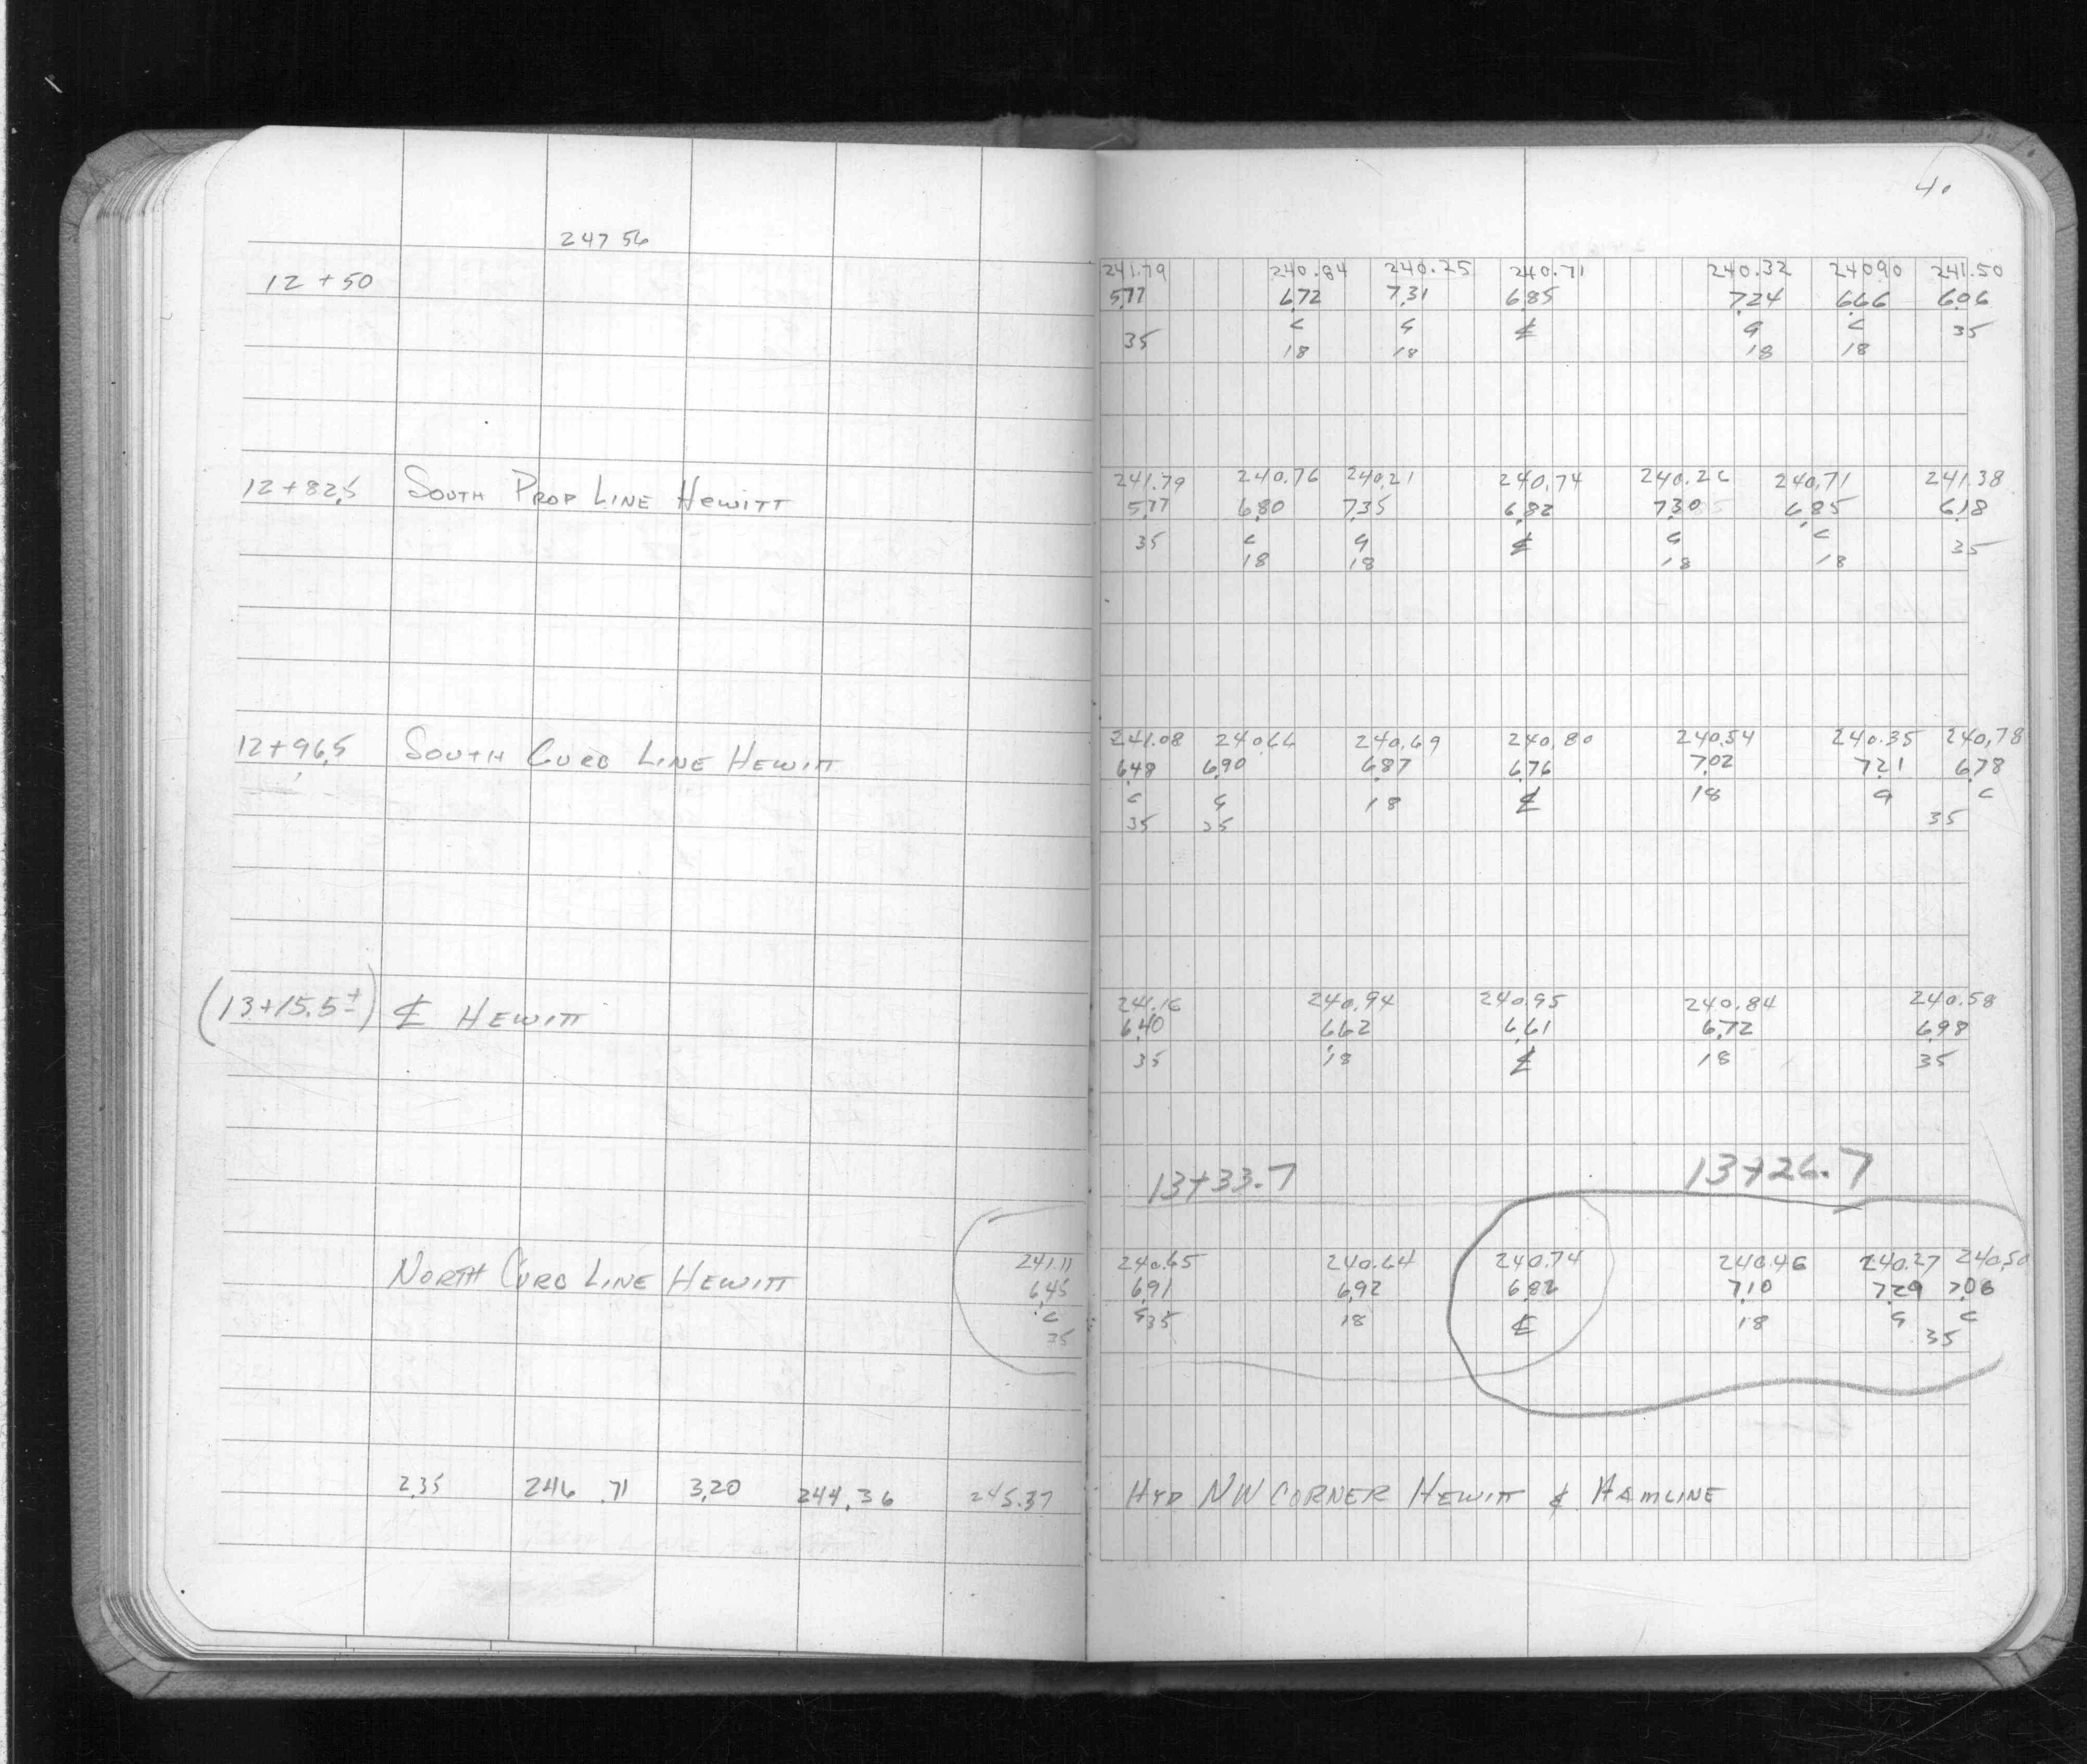 4.
247 56
12 + 50 241.79 240.84 240.25 240.71 240.32 24090 241.50
5.77 6.72 7.31 6.85 7.24 6.66 6.06
35 C G ℄ G C 35
18 18 18 18
12+82.5 South Prop Line Hewitt 241.79 240.76 240.21 240.74 240.26 240.71 241.38
5.77 6.80 7.35 6.82 7.30 6.85 6.18
35 C G ℄ G C 35
18 18 18 18
12+96.5 South Curb Line Hewitt 241.08 240.66 240.69 240.80 240.54 240.35 240.78
6.48 6.90 6.87 6.76 7.02 7.21 6.78
C G 18 ℄ 18 G C
35 35 35
(13+15.5±) ℄ Hewitt 241.16 240.94 240.95 240.84 240.58
6.40 6.62 6.61 6.72 6.98
35 18 ℄ 18 35
13+33.7 13+26.7
North Curb Line Hewitt 241.11 240.65 240.64 240.74 240.46 240.27 240.50
6.45 6.91 6.92 6.82 7.10 7.29 7.06
C G35 18 ℄ 18 G C
35 35
2.35 246.71 3.20 244.36 245.37 Hyd NW Corner Hewitt & Hamline